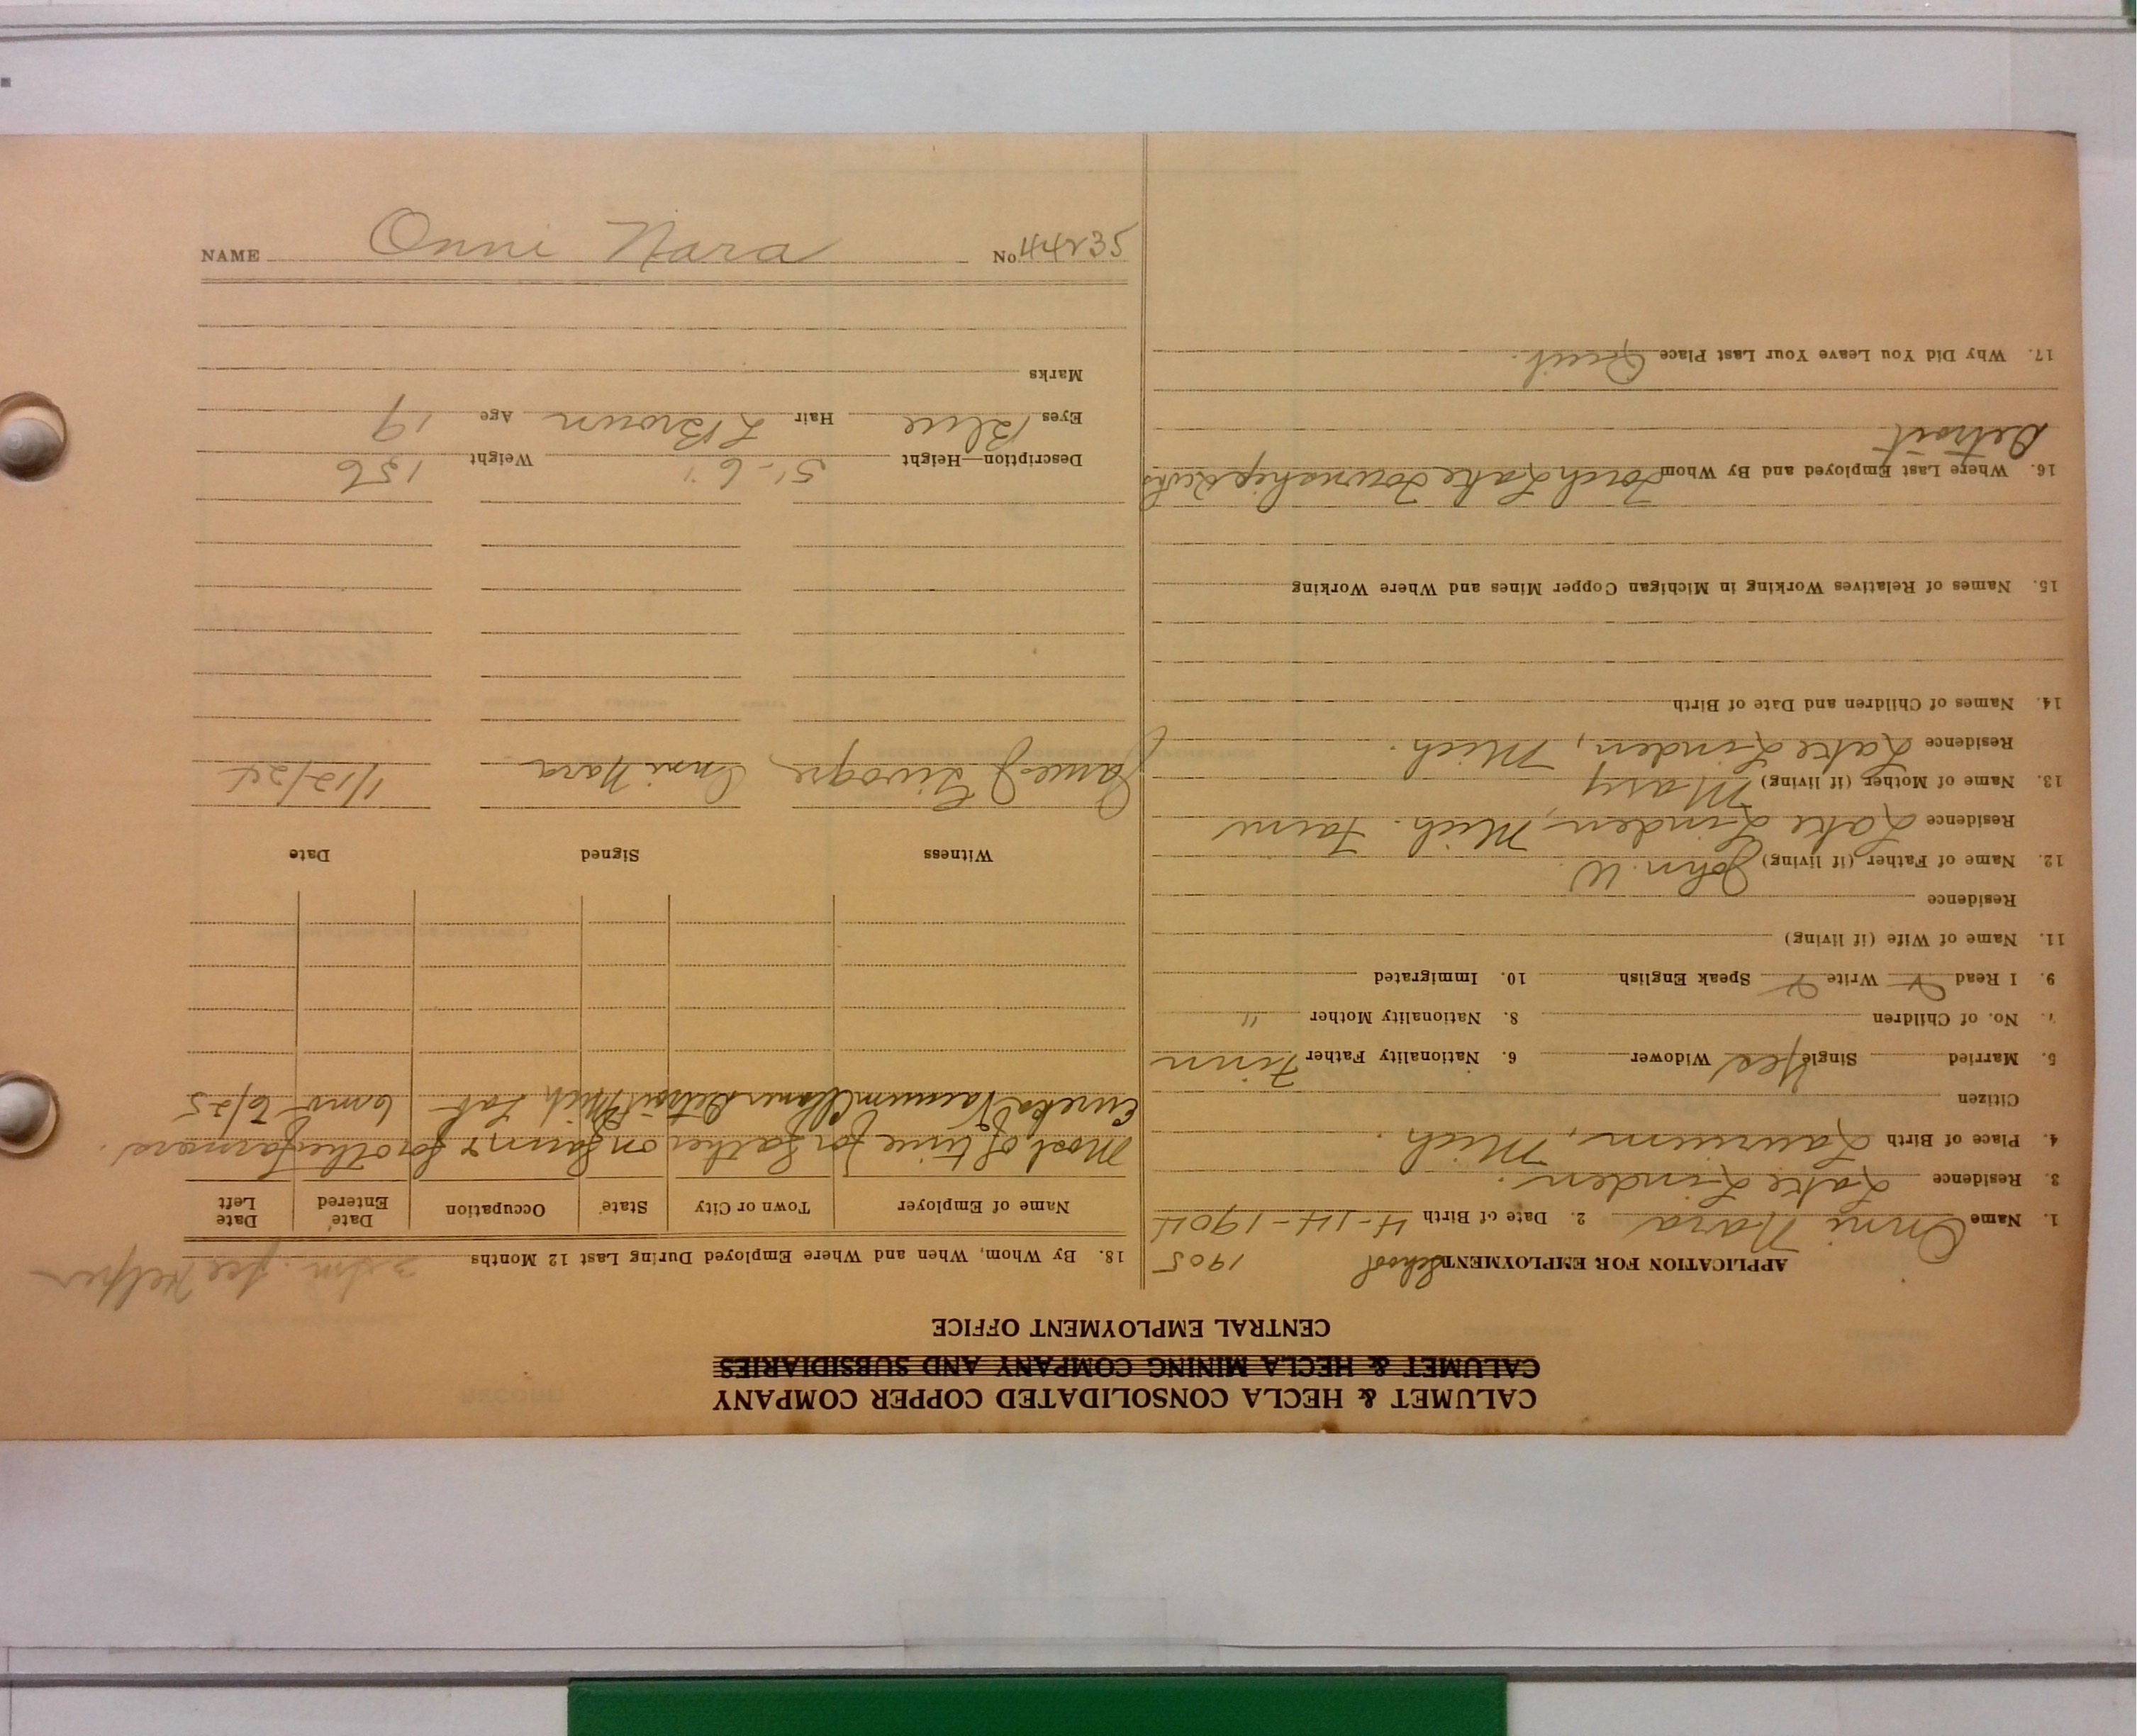 NAME Onni Nara No. 44235
CALUMET & HECLA CONSOLIDATED COPPER COMPANY
CALUMET & HECLA MINING COMPANY AND SUBSIDIARIES
CENTRAL EMPLOYMENT OFFICE
APPLICATION FOR EMPLOYMENT School 1905
1. Name Onni Nara 2. Date of Birth 4-14-1904
3. Residence Lake Linden.
4. Place of Birth Laurium, Mich.
Citizen
5. Married Single Yes Widower 6. Nationality Father Finn
7. No. of Children 8. Nationality Mother "
9. I Read Write Speak English 10. Immigrated
11. Name of Wife (if living)
Residence
12. Name of Father (if living) John W.
Residence Lake Linden, Mich. Farm
13. Name of Mother (if living) Mary
Residence Lake Linden, Mich.
14. Names of Children and Date of Birth
15. Names of Relatives Working in Michigan Copper Mines and Where Working
16. Where Last Employed and By Whom Torch Lake Township
Detroit
17. Why Did You Leave Your Last Place Quit.
18. By Whom, When and Where Employed During Last 12 Months
Name of Employer Town or City State Occupation Date Entered Date Left
Most of time for father on farm & for other farmers.
Eureka Vacuum Cleaner Detroit Mich Lab 6 mo 6/25
Witness Signed Date
James J Onni Nara 1/12/24
Description—Height 5'-6" Weight 156
Eyes Blue Hair L Brown Age 19
Marks